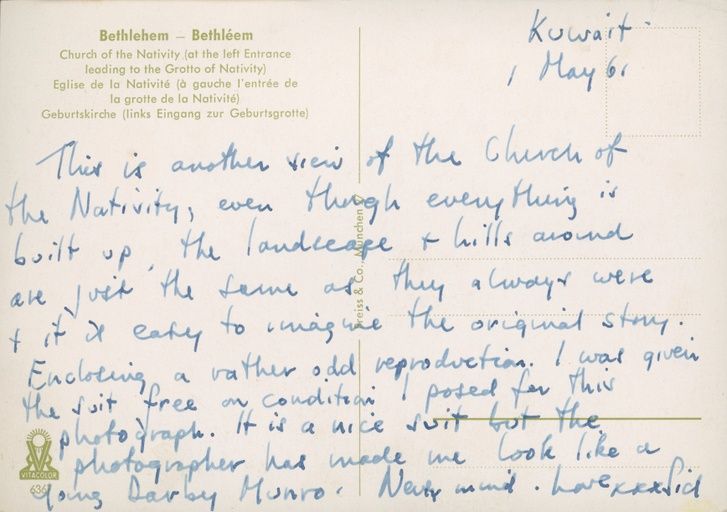 Bethlehem – Bethléem
Church of the Nativity (at the left Entrance
leading to the Grotto of Nativity)
Eglise de la Nativité (à gauche l'entrée de
la grotte de la Nativité)
Geburtskirche (links Eingang zur Geburtsgrotte)
Kuwait.
1 May 61
This is another view of the Church of
the Nativity; even though everything is
built up, the landscape + hills around
are just the same as they always were
+ it is easy to imagine the original story.
Enclosing a rather odd reproduction. I was given
the suit free on condition I posed for this
photograph. It is a nice suit but the
photographer has made me look like a
young Darby Munro. Never mind. Love xxx Sid
Preiss & Co., München
VITACOLOR
636